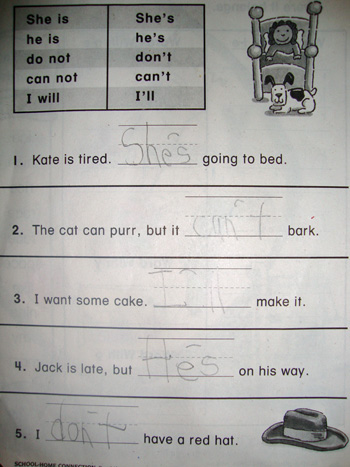 She is She's
he is he's
do not don't
can not can't
I will I'll
1. Kate is tired. She's going to bed.
2. The cat can purr, but it can't bark.
3. I want some cake. I'll make it.
4. Jack is late, but He's on his way.
5. I don't have a red hat.
SCHOOL-HOME CONNECTION